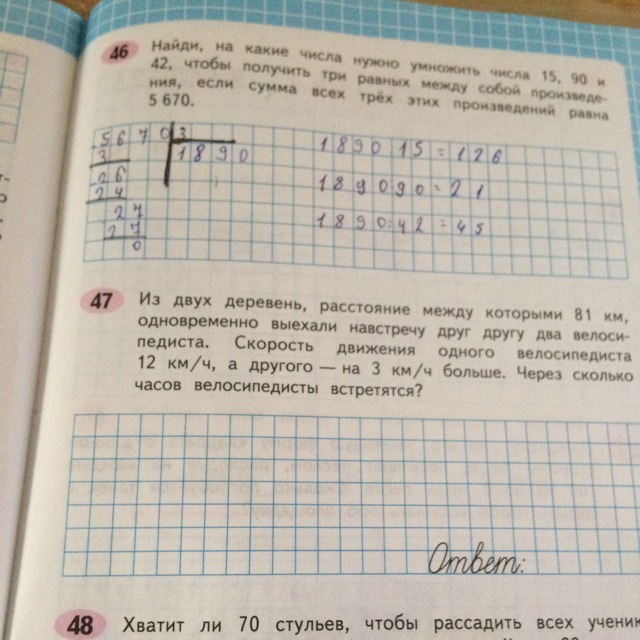 46 Найди, на какие числа нужно умножить числа 15, 90 и
42, чтобы получить три равных между собой произведе-
ния, если сумма всех трёх этих произведений равна
5 670.
5 6 7 0 3
3 1 8 9 0 1 8 9 0 1 5 = 1 2 6
2 6
2 4 1 8 9 0 : 9 0 = 2 1
2 7
2 7 1 8 9 0 : 4 2 = 4 5
0
47 Из двух деревень, расстояние между которыми 81 км,
одновременно выехали навстречу друг другу два велоси-
педиста. Скорость движения одного велосипедиста
12 км/ч, а другого — на 3 км/ч больше. Через сколько
часов велосипедисты встретятся?
Ответ:
48 Хватит ли 70 стульев, чтобы рассадить всех учени